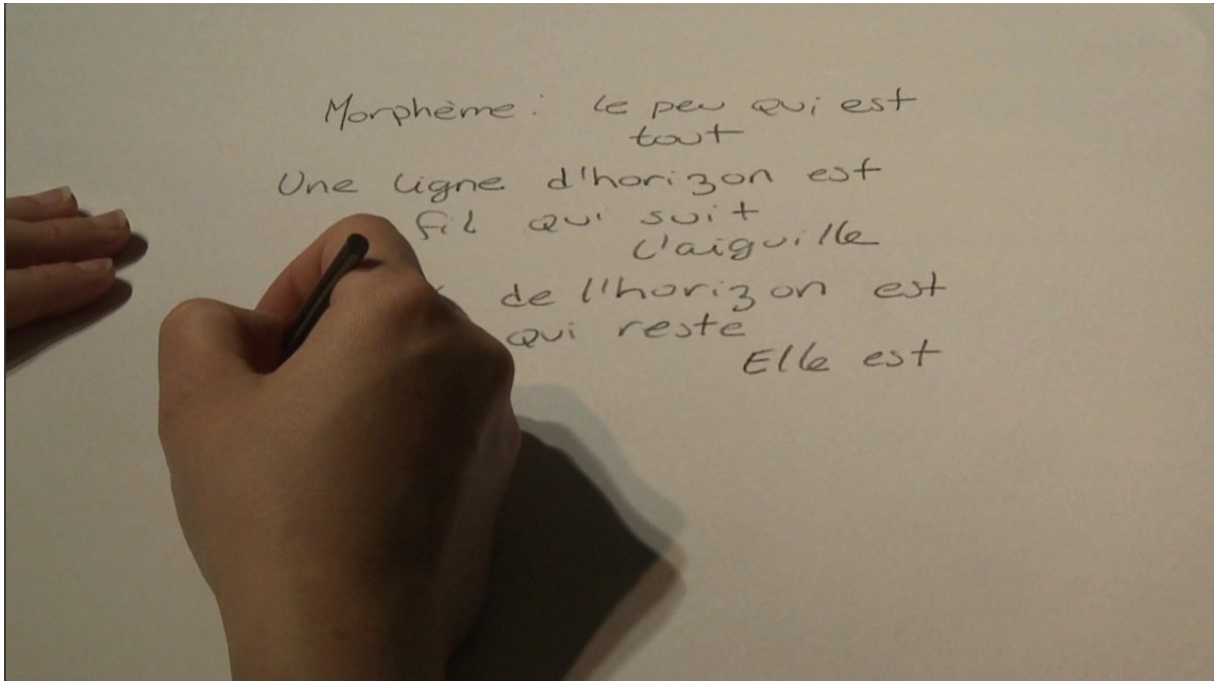 Morphème : le peu qui est
tout
Une ligne d'horizon est
fil qui suit
l'aiguille
de l'horizon est
qui reste
Elle est